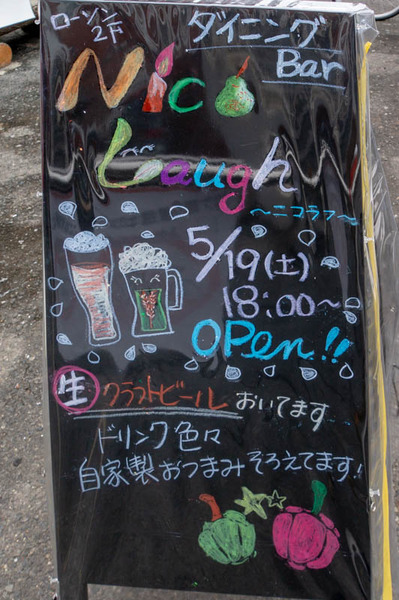 ローソン
2F
ダイニング
Bar
Nico
Laugh
～ニコラフ～
5/19(土)
18:00～
OPen!!
生クラフトビールおいてます
ドリンク色々
自家製おつまみそろえてます!